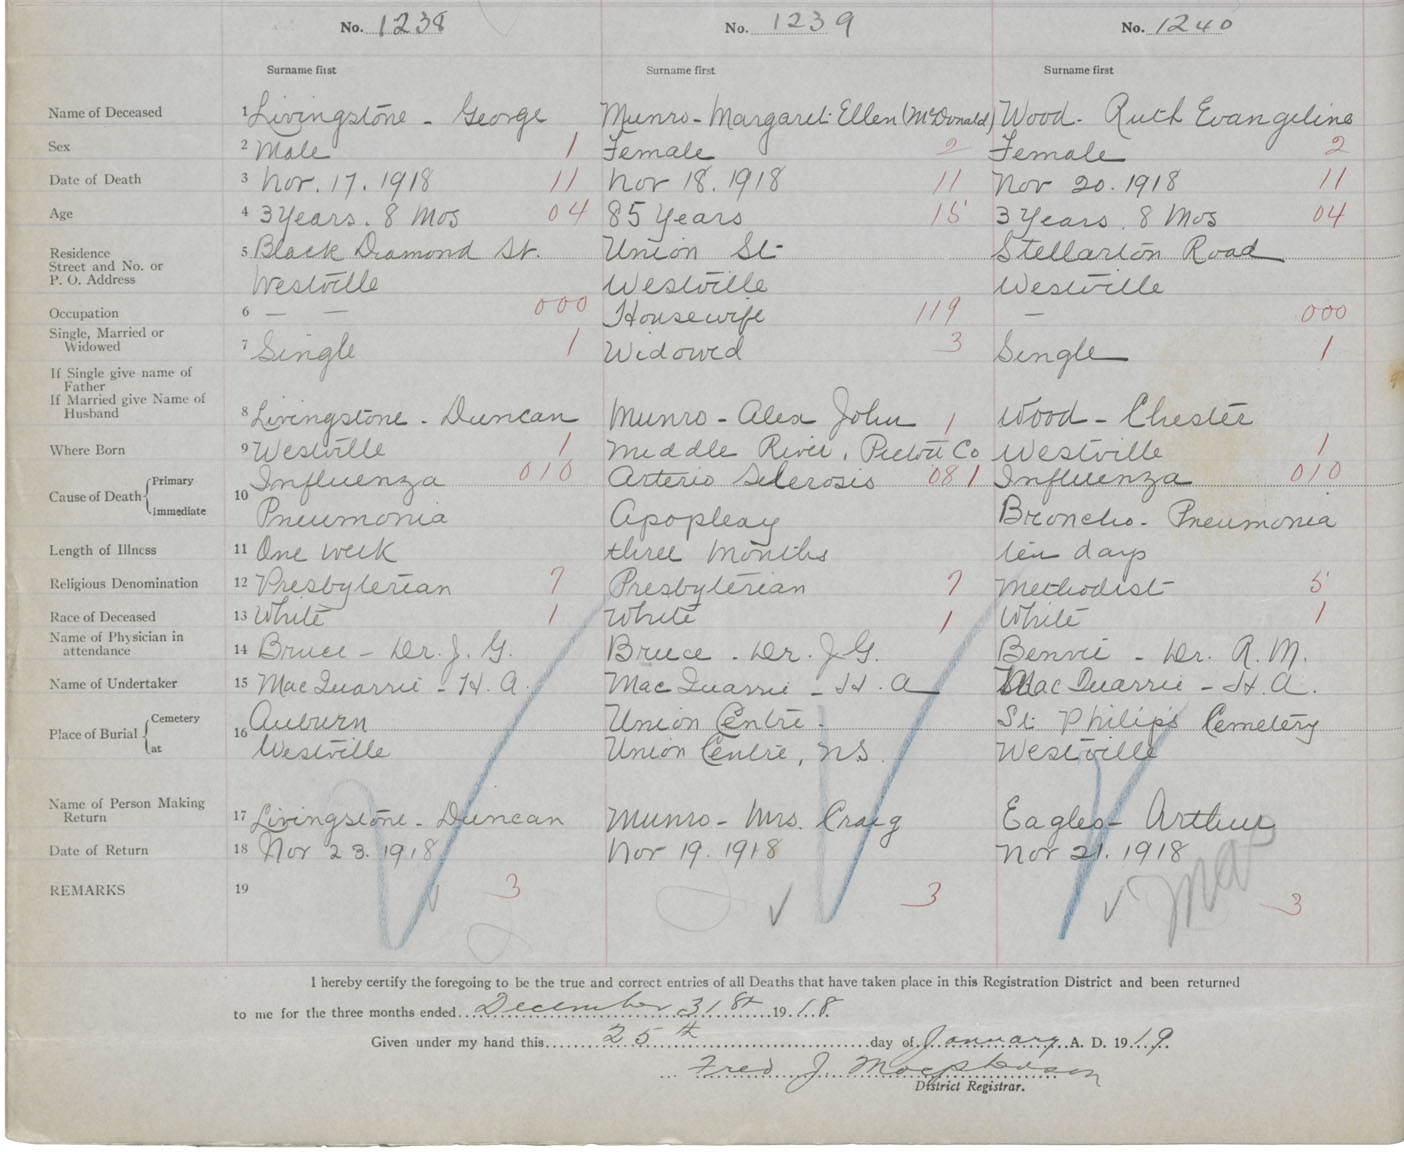 No. 1238 No. 1239 No. 1240
Surname first Surname first Surname first
Name of Deceased 1 Livingstone - George Munro - Margaret Ellen (McDonald) Wood - Ruth Evangeline
Sex 2 Male 1 Female 2 Female 2
Date of Death 3 Nov. 17. 1918 11 Nov 18. 1918 11 Nov 20. 1918 11
Age 4 3 Years. 8 Mos 04 85 Years 15 3 Years. 8 Mos 04
Residence 5 Black Diamond St. Union St Stellarton Road
Street and No. or
P. O. Address Westville Westville Westville
Occupation 6 — — 000 Housewife 119 — 000
Single, Married or
Widowed 7 Single 1 Widowed 3 Single 1
If Single give name of
Father
If Married give Name of
Husband 8 Livingstone - Duncan Munro - Alex John 1 Wood - Chester
Where Born 9 Westville 1 Middle River, Pictou Co Westville 1
Cause of Death Primary 10 Influenza 010 Arterio Sclerosis 081 Influenza 010
Immediate Pneumonia Apoplexy Broncho - Pneumonia
Length of Illness 11 One week three months ten days
Religious Denomination 12 Presbyterian 7 Presbyterian 7 Methodist 5
Race of Deceased 13 White 1 White 1 White 1
Name of Physician in
attendance 14 Bruce - Dr. J. G. Bruce - Dr. J. G. Benvie - Dr. A. M.
Name of Undertaker 15 MacQuarrie - H. A. MacQuarrie - H. A MacQuarrie - H. A.
Place of Burial Cemetery 16 Auburn Union Centre. St. Philip's Cemetery
at Westville Union Centre, NS. Westville
Name of Person Making
Return 17 Livingstone - Duncan Munro - Mrs. Craig Eagles - Arthur
Date of Return 18 Nov 23. 1918 Nov 19. 1918 Nov 21. 1918
REMARKS 19 3 3 3
I hereby certify the foregoing to be the true and correct entries of all Deaths that have taken place in this Registration District and been returned
to me for the three months ended December 31st 1918
Given under my hand this 25th day of January A. D. 1919
Fred J. Macpherson
District Registrar.